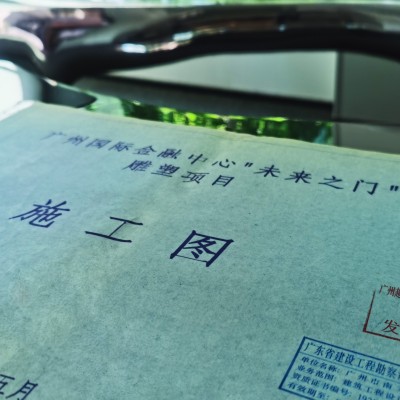 广州国际金融中心"未来之门"
雕塑项目
施工图
广州
发
广东省建设工程勘察
单位名称：广州市南
业务范围：建筑工程设
资质证书编号：19
有效期至：
五月